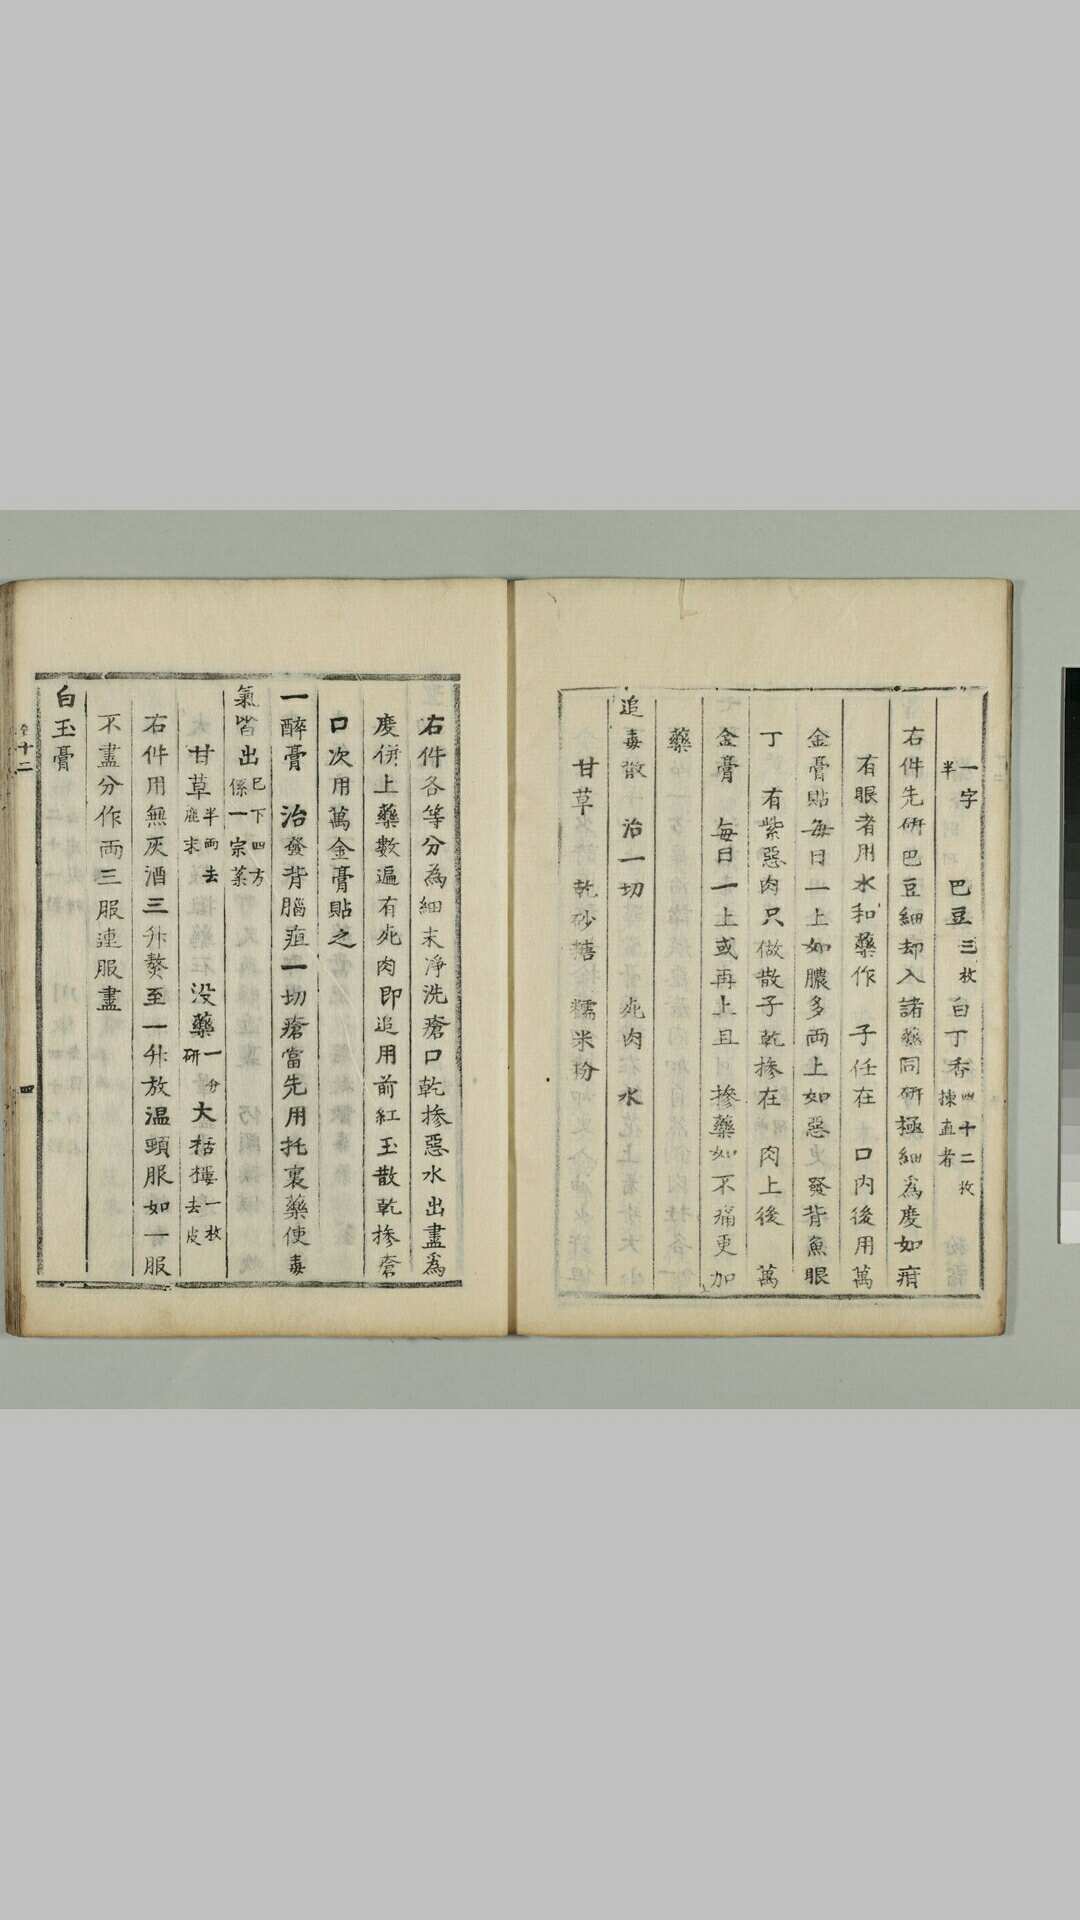 一字半　巴豆三枚　白丁香四十二枚揀直者
右件先研巴豆細却入諸藥同研極細為度如瘡
有眼者用水和藥作　子任在　口內後用萬
金膏貼每日一上如膿多兩上如惡　發背魚眼
丁　有紫惡肉只做散子乾摻在　肉上後　萬
金膏　每日一上或再上且　摻藥如不痛更加
藥
追毒散　治一切　死肉　水
甘草　乾砂糖　糯米粉
右件各等分為細末淨洗瘡口乾摻惡水出盡為
度併上藥數遍有死肉即追用前紅玉散乾摻瘡
口次用萬金膏貼之
一醉膏　治發背腦疽一切瘡當先用托裏藥使毒
氣皆出已下四方係一宗藥
甘草半兩去　沒藥一分研　大栝蔞一枚去皮
右件用無灰酒三升熬至一升放溫頓服如一服
不盡分作兩三服連服盡
白玉膏
卷十二　四